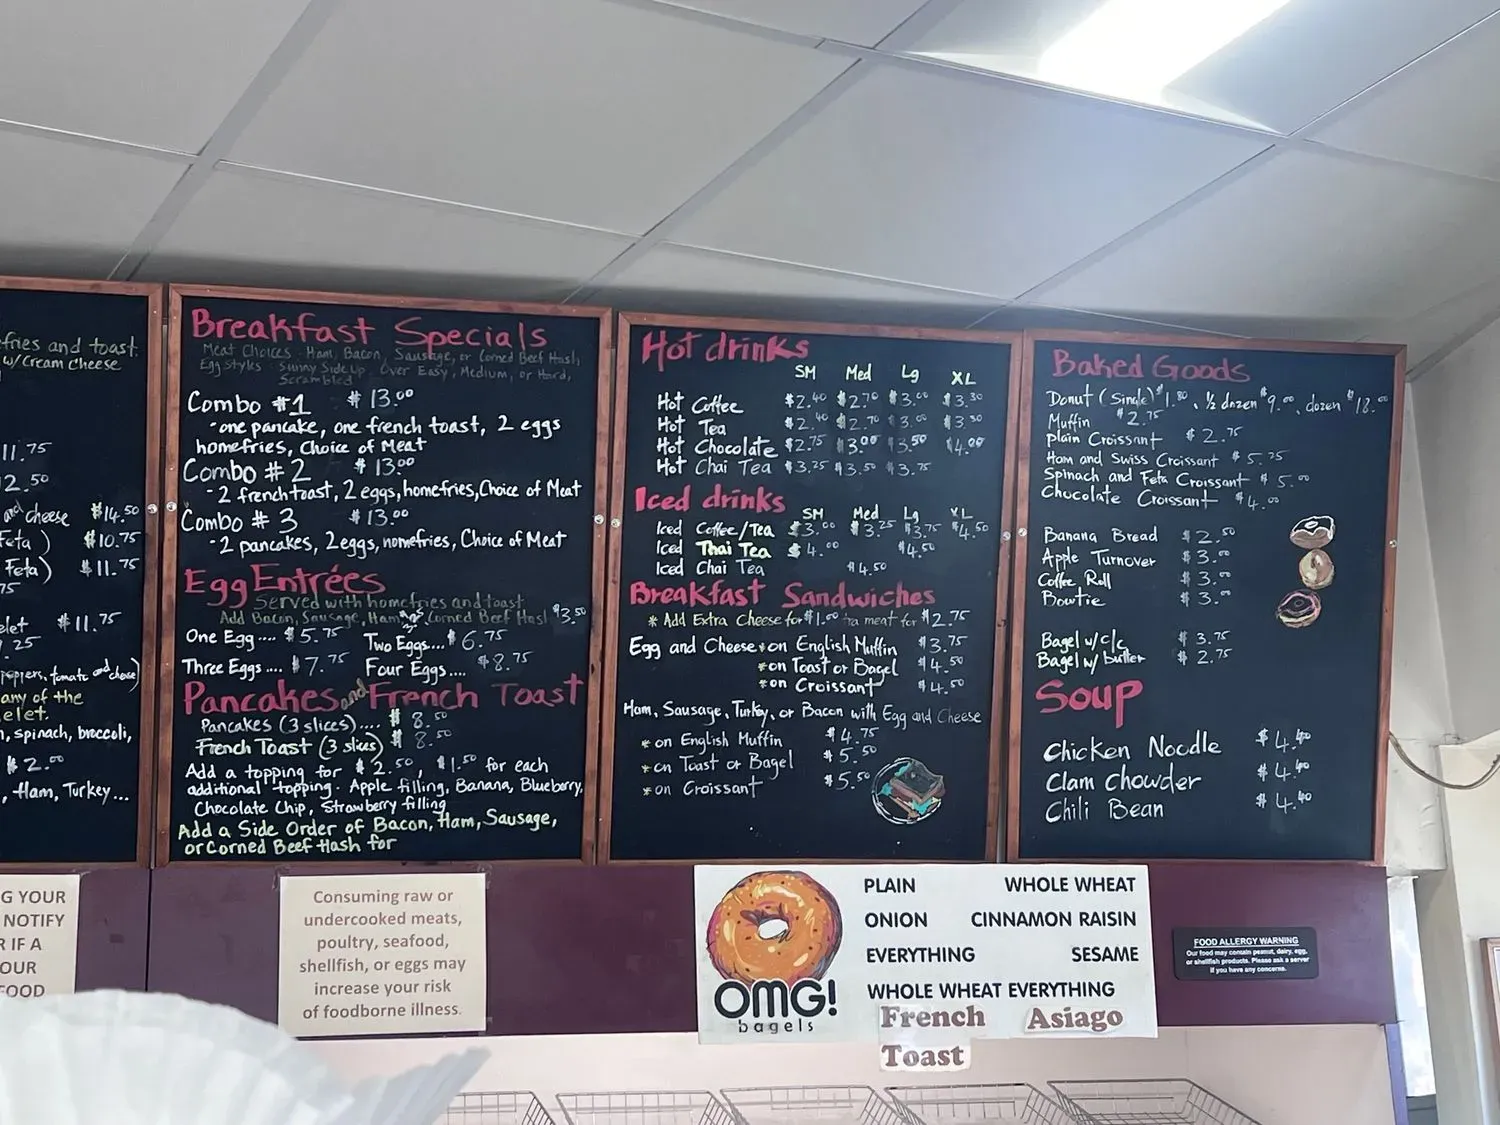 fries and toast
w/cream cheese
11.75
2.50
and cheese $14.50
Feta) $10.75
Feta) $11.75
75
elet $11.75
.25
peppers, tomato and cheese)
any of the
elet.
, spinach, broccoli,
$2.00
, Ham, Turkey...
Breakfast Specials
Meat Choices - Ham, Bacon, Sausage, or Corned Beef Hash,
Egg Styles - Sunny Side Up, Over Easy, Medium, or Hard,
Scrambled
Combo #1 $13.00
- one pancake, one french toast, 2 eggs
homefries, Choice of Meat
Combo #2 $13.00
- 2 french toast, 2 eggs, homefries, Choice of Meat
Combo #3 $13.00
- 2 pancakes, 2 eggs, homefries, Choice of Meat
Egg Entrées
Served with homefries and toast
Add Bacon, Sausage, Ham Corned Beef Hash $3.50
One Egg.... $5.75 Two Eggs.... $6.75
Three Eggs.... $7.75 Four Eggs.... $8.75
Pancakes and French Toast
Pancakes (3 slices).... $8.50
French Toast (3 slices) $8.50
Add a topping for $2.50, $1.50 for each
additional topping - Apple filling, Banana, Blueberry,
Chocolate Chip, Strawberry filling
Add a Side Order of Bacon, Ham, Sausage,
or Corned Beef Hash for
Hot drinks
SM Med Lg XL
Hot Coffee $2.40 $2.70 $3.00 $3.30
Hot Tea $2.40 $2.70 $3.00 $3.30
Hot Chocolate $2.75 $3.00 $3.50 $4.00
Hot Chai Tea $3.25 $3.50 $3.75
Iced drinks
SM Med Lg XL
Iced Coffee/Tea $3.00 $3.25 $3.75 $4.50
Iced Thai Tea $4.00 $4.50
Iced Chai Tea $4.50
Breakfast Sandwiches
* Add Extra Cheese for $1.00 meat for $2.75
Egg and Cheese * on English Muffin $3.75
* on Toast or Bagel $4.50
* on Croissant $4.50
Ham, Sausage, Turkey, or Bacon with Egg and Cheese
* on English Muffin $4.75
* on Toast or Bagel $5.50
* on Croissant $5.50
Baked Goods
Donut (Single) $1.80, ½ dozen $9.00, dozen $18.00
Muffin $2.75
plain Croissant $2.75
Ham and Swiss Croissant $5.75
Spinach and Feta Croissant $5.00
Chocolate Croissant $4.00
Banana Bread $2.50
Apple Turnover $3.00
Coffee Roll $3.00
Bowtie $3.00
Bagel w/c/c $3.75
Bagel w/ butter $2.75
Soup
Chicken Noodle $4.40
Clam Chowder $4.40
Chili Bean $4.40
G YOUR
NOTIFY
R IF A
OUR
FOOD
Consuming raw or
undercooked meats,
poultry, seafood,
shellfish, or eggs may
increase your risk
of foodborne illness.
OMG!
bagels
PLAIN WHOLE WHEAT
ONION CINNAMON RAISIN
EVERYTHING SESAME
WHOLE WHEAT EVERYTHING
French Asiago
Toast
FOOD ALLERGY WARNING
Our food may contain peanut, dairy, egg,
or shellfish products. Please ask a server
if you have any concerns.